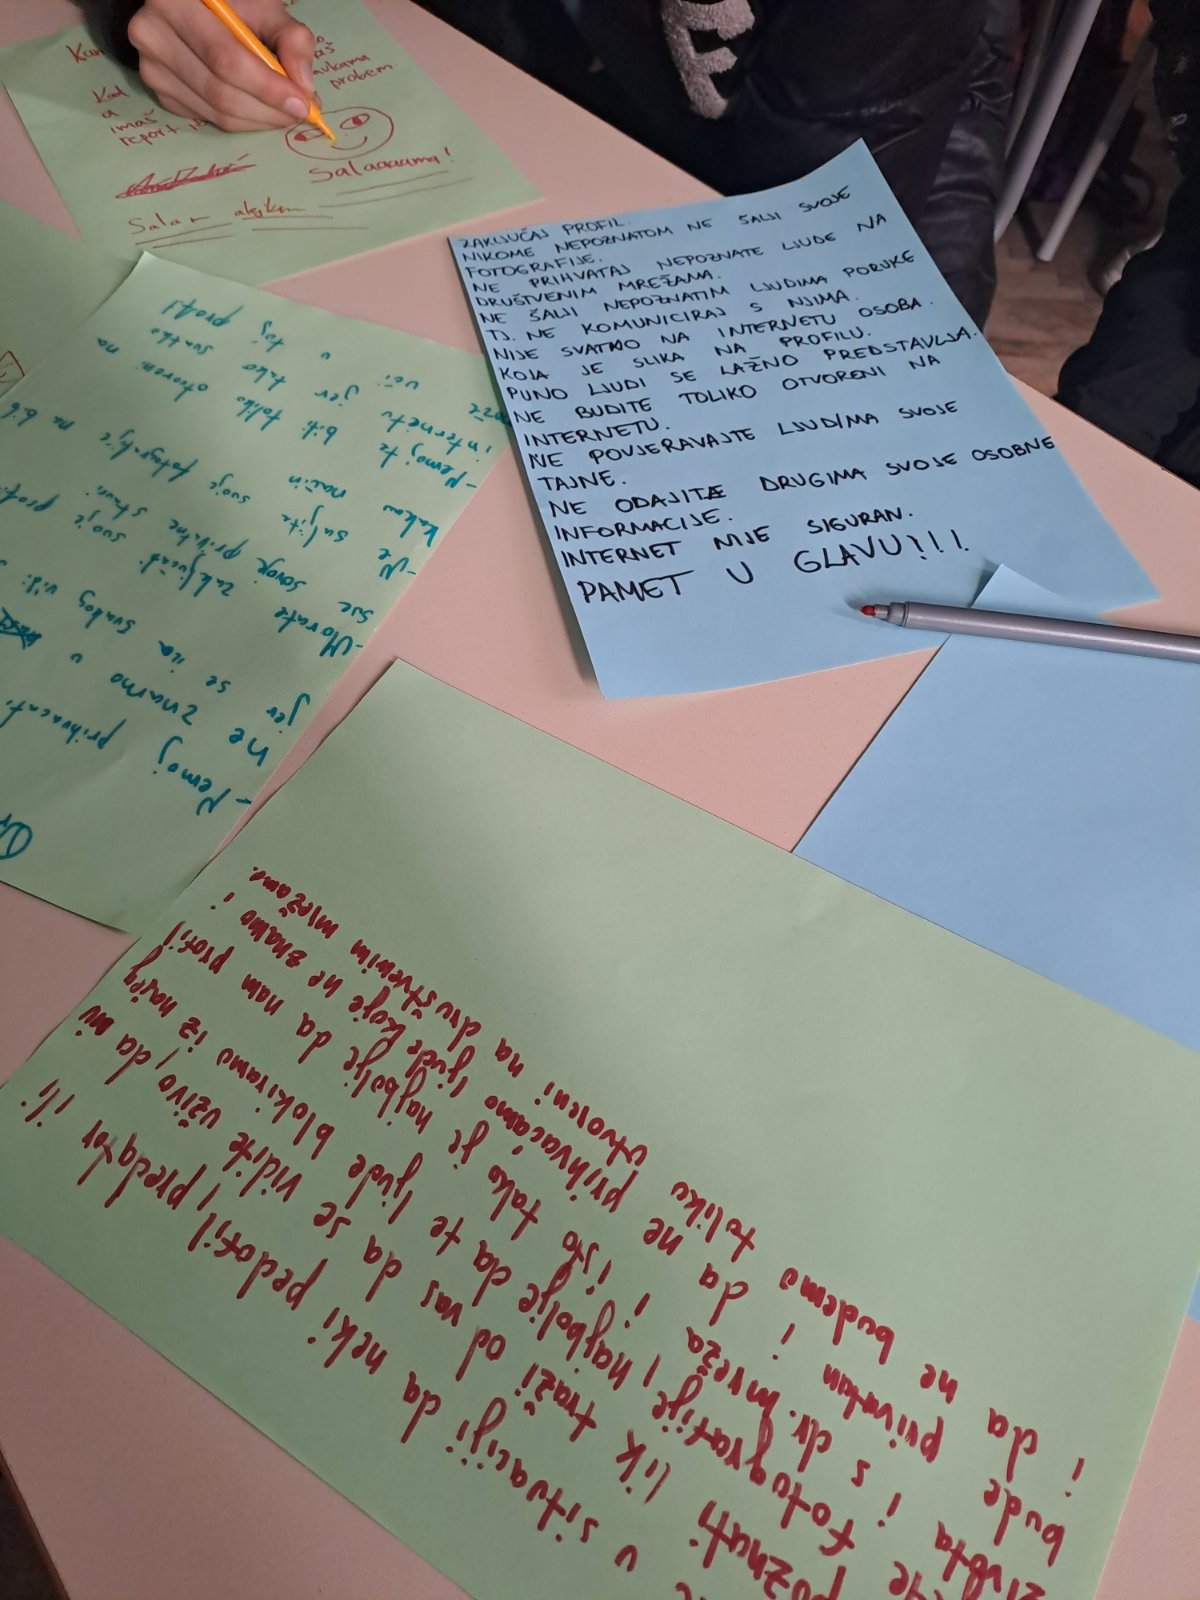 Kad
a
imaš
report
probem.
Salaaaama!
Salam alejkum
ZAKLJUČAJ PROFIL.
NIKOME NEPOZNATOM NE ŠALJI SVOJE
FOTOGRAFIJE.
NE PRIHVATAJ NEPOZNATE LJUDE NA
DRUŠTVENIM MREŽAMA.
NE ŠALJI NEPOZNATIM LJUDIMA PORUKE
TJ. NE KOMUNICIRAJ S NJIMA.
NIJE SVATKO NA INTERNETU OSOBA
KOJA JE SLIKA NA PROFILU.
PUNO LJUDI SE LAŽNO PREDSTAVLJA.
NE BUDITE TOLIKO OTVORENI NA
INTERNETU.
NE POVJERAVAJTE LJUDIMA SVOJE
TAJNE.
NE ODAJITE DRUGIMA SVOJE OSOBNE
INFORMACIJE.
INTERNET NIJE SIGURAN.
PAMET U GLAVU!!!
-Nemoj prihvacati
ne znamo u
jer se iza svakog
-Morate zaključat svoje
sve svoje privatne stvari
-Ne saljite svoje fotografije na bilo
kakav način
-Nemojte biti toliko otvoreni na
internetu jer tako svatko
može ući u toj profil
u situaciji da neki pedofil, predator ili
poznati lik traži od vas da se vidite uživo, da mu
fotografije, najbolje je da te ljude blokiramo iz našeg
života i s dr. mreža i isto tako je najbolje da nam profil
bude privatan i da ne prihvaćamo ljude koje ne znamo i
i da ne budemo toliko otvoreni na društvenim mrežama.